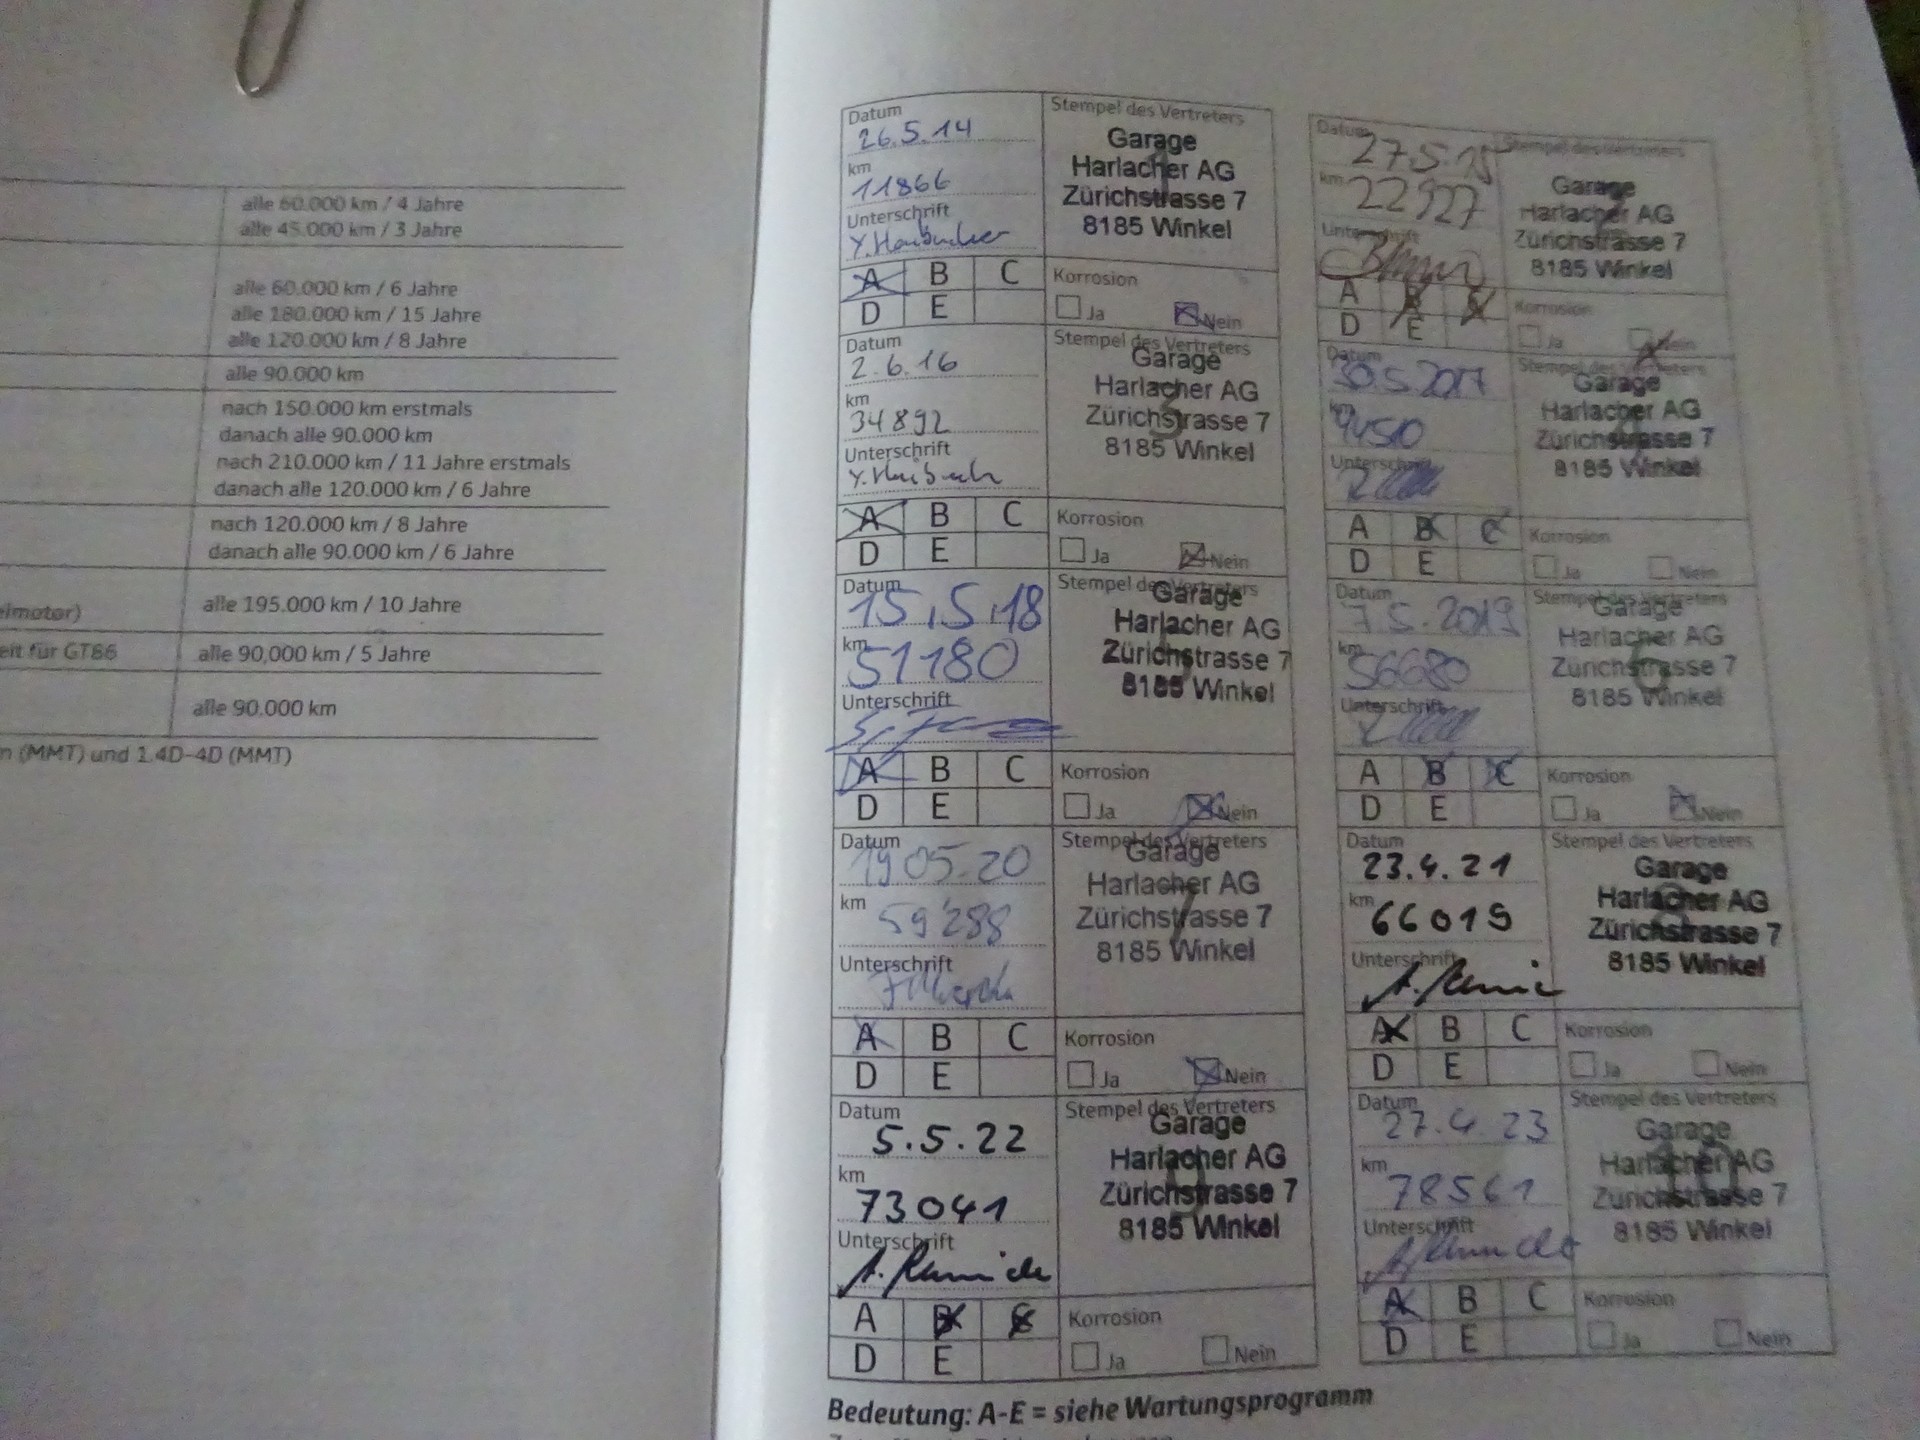 alle 60.000 km / 4 Jahre
alle 45.000 km / 3 Jahre
alle 60.000 km / 6 Jahre
alle 180.000 km / 15 Jahre
alle 120.000 km / 8 Jahre
alle 90.000 km
nach 150.000 km erstmals
danach alle 90.000 km
nach 210.000 km / 11 Jahre erstmals
danach alle 120.000 km / 6 Jahre
nach 120.000 km / 8 Jahre
danach alle 90.000 km / 6 Jahre
elmotor)
alle 195.000 km / 10 Jahre
eit für GT86
alle 90,000 km / 5 Jahre
alle 90.000 km
n (MMT) und 1.4D-4D (MMT)
Datum
26.5.14
km
11866
Unterschrift
Stempel des Vertreters
Garage
Harlacher AG
Zürichstrasse 7
8185 Winkel
A B C
D E
Korrosion
Ja Nein
Datum
27.5.15
km
22927
Unterschrift
Stempel des Vertreters
Garage
Harlacher AG
Zürichstrasse 7
8185 Winkel
A B C
D E
Korrosion
Ja Nein
Datum
2.6.16
km
34892
Unterschrift
Stempel des Vertreters
Garage
Harlacher AG
Zürichstrasse 7
8185 Winkel
A B C
D E
Korrosion
Ja Nein
Datum
30.5.2017
km
44510
Unterschrift
Stempel des Vertreters
Garage
Harlacher AG
Zürichstrasse 7
8185 Winkel
A B C
D E
Korrosion
Ja Nein
Datum
15.5.18
km
51180
Unterschrift
Stempel des Vertreters
Garage
Harlacher AG
Zürichstrasse 7
8185 Winkel
A B C
D E
Korrosion
Ja Nein
Datum
7.5.2019
km
56680
Unterschrift
Stempel des Vertreters
Garage
Harlacher AG
Zürichstrasse 7
8185 Winkel
A B C
D E
Korrosion
Ja Nein
Datum
19.05.20
km
59'288
Unterschrift
Stempel des Vertreters
Garage
Harlacher AG
Zürichstrasse 7
8185 Winkel
A B C
D E
Korrosion
Ja Nein
Datum
23.4.21
km
66019
Unterschrift
Stempel des Vertreters
Garage
Harlacher AG
Zürichstrasse 7
8185 Winkel
A B C
D E
Korrosion
Ja Nein
Datum
5.5.22
km
73041
Unterschrift
Stempel des Vertreters
Garage
Harlacher AG
Zürichstrasse 7
8185 Winkel
A B C
D E
Korrosion
Ja Nein
Datum
27.4.23
km
78561
Unterschrift
Stempel des Vertreters
Garage
Harlacher AG
Zürichstrasse 7
8185 Winkel
A B C
D E
Korrosion
Ja Nein
Bedeutung: A-E = siehe Wartungsprogramm